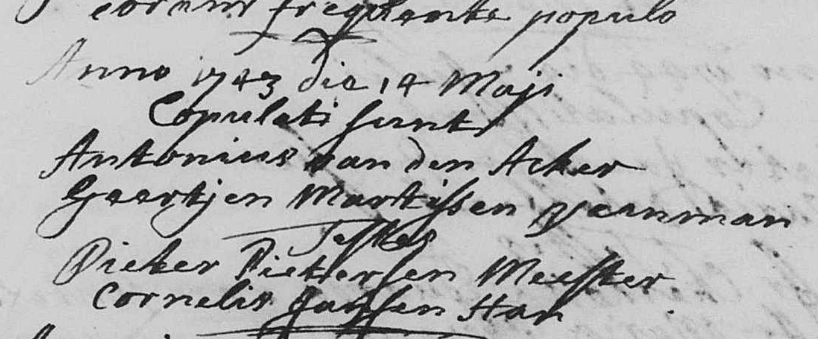 coram frequente populo
Anno 1743 die 14 Maji
Copulati sunt
Antonius van den Acker
Geertjen Martissen veenman
Testes
Pieter Pietersen Meester
Cornelis Janssen Han